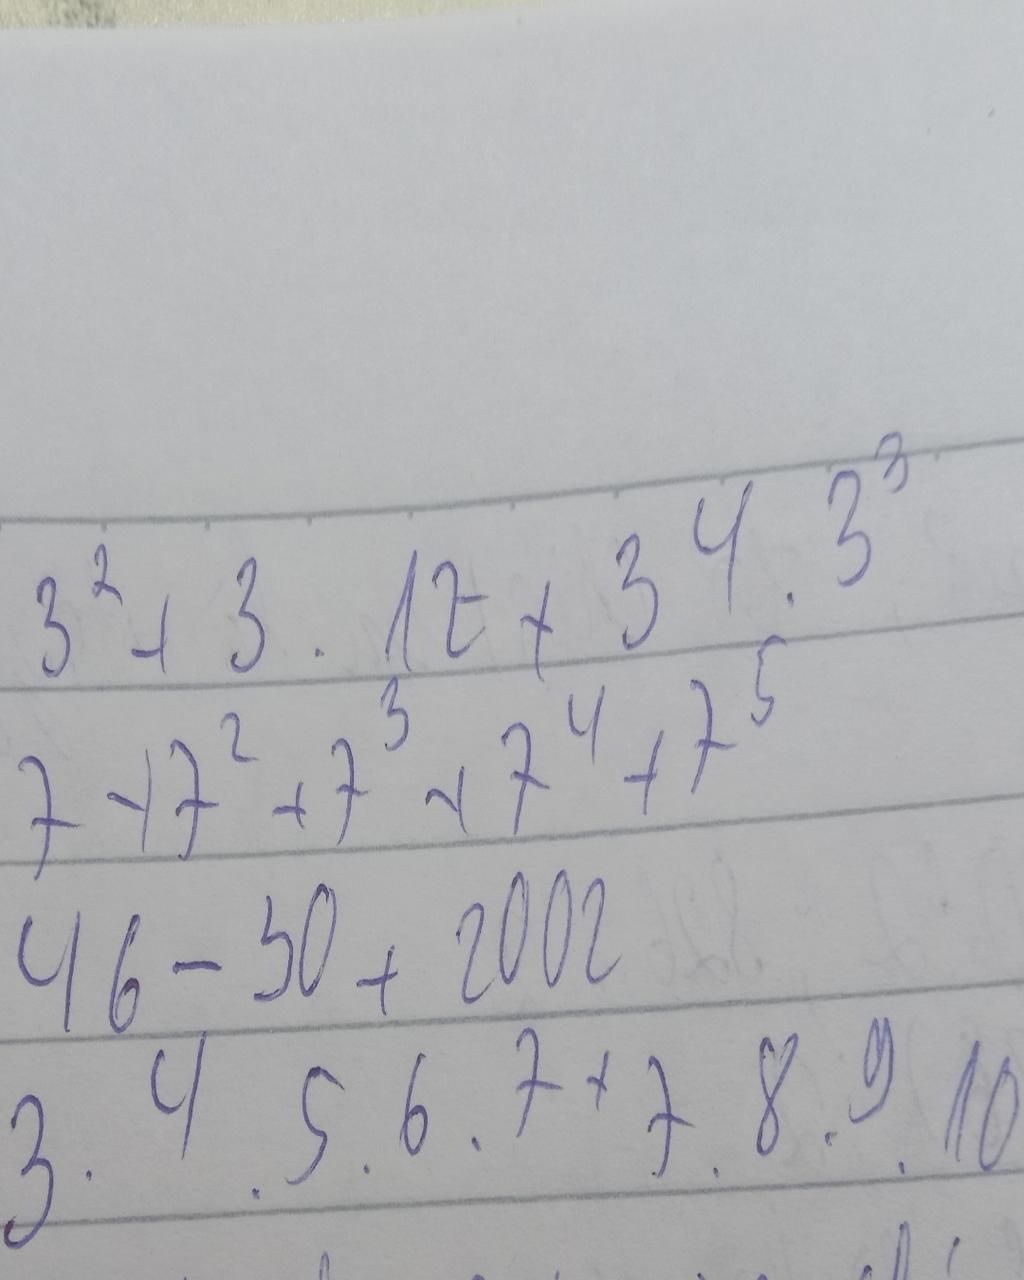 3² + 3 . 17 + 3⁴ . 3³
7 + 7² + 7³ + 7⁴ + 7⁵
46 - 50 + 2002
3 . 4 . 5 . 6 . 7 + 7 . 8 . 9 . 10